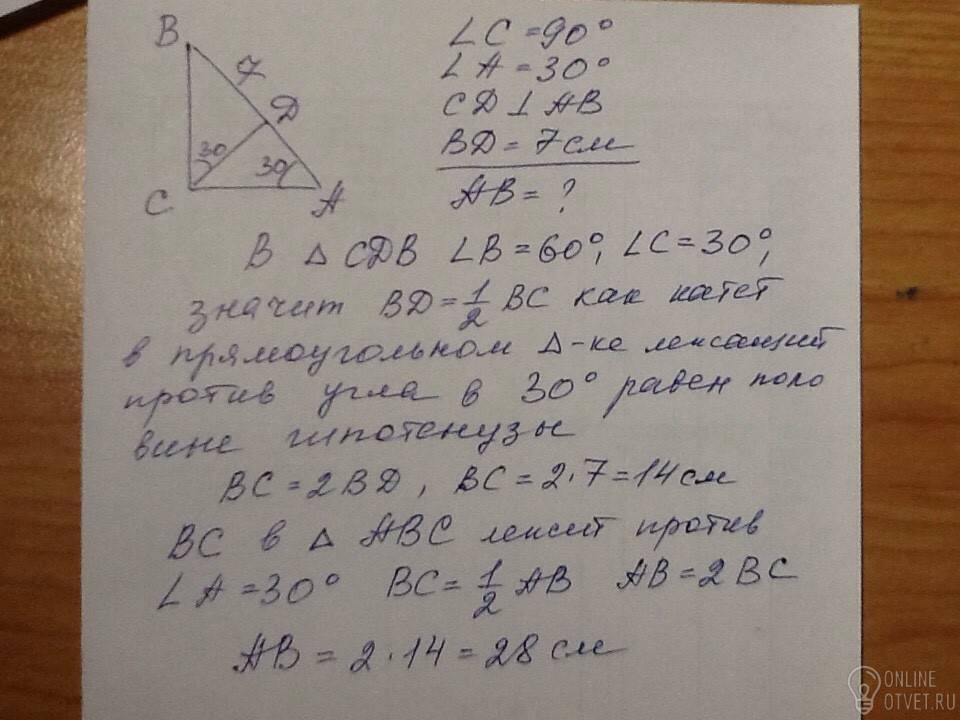 B
7
D
30
30
C
A
∠C=90°
∠A=30°
CD⊥AB
BD=7см
AB=?
В △CDB ∠B=60°, ∠C=30°,
значит BD=1/2 BC как катет
в прямоугольном △-ке лежащий
против угла в 30° равен поло
вине гипотенузы
BC=2BD, BC=2·7=14см
BC в △ABC лежит против
∠A=30° BC=1/2 AB AB=2BC
AB=2·14=28см
ONLINE
OTVET.RU